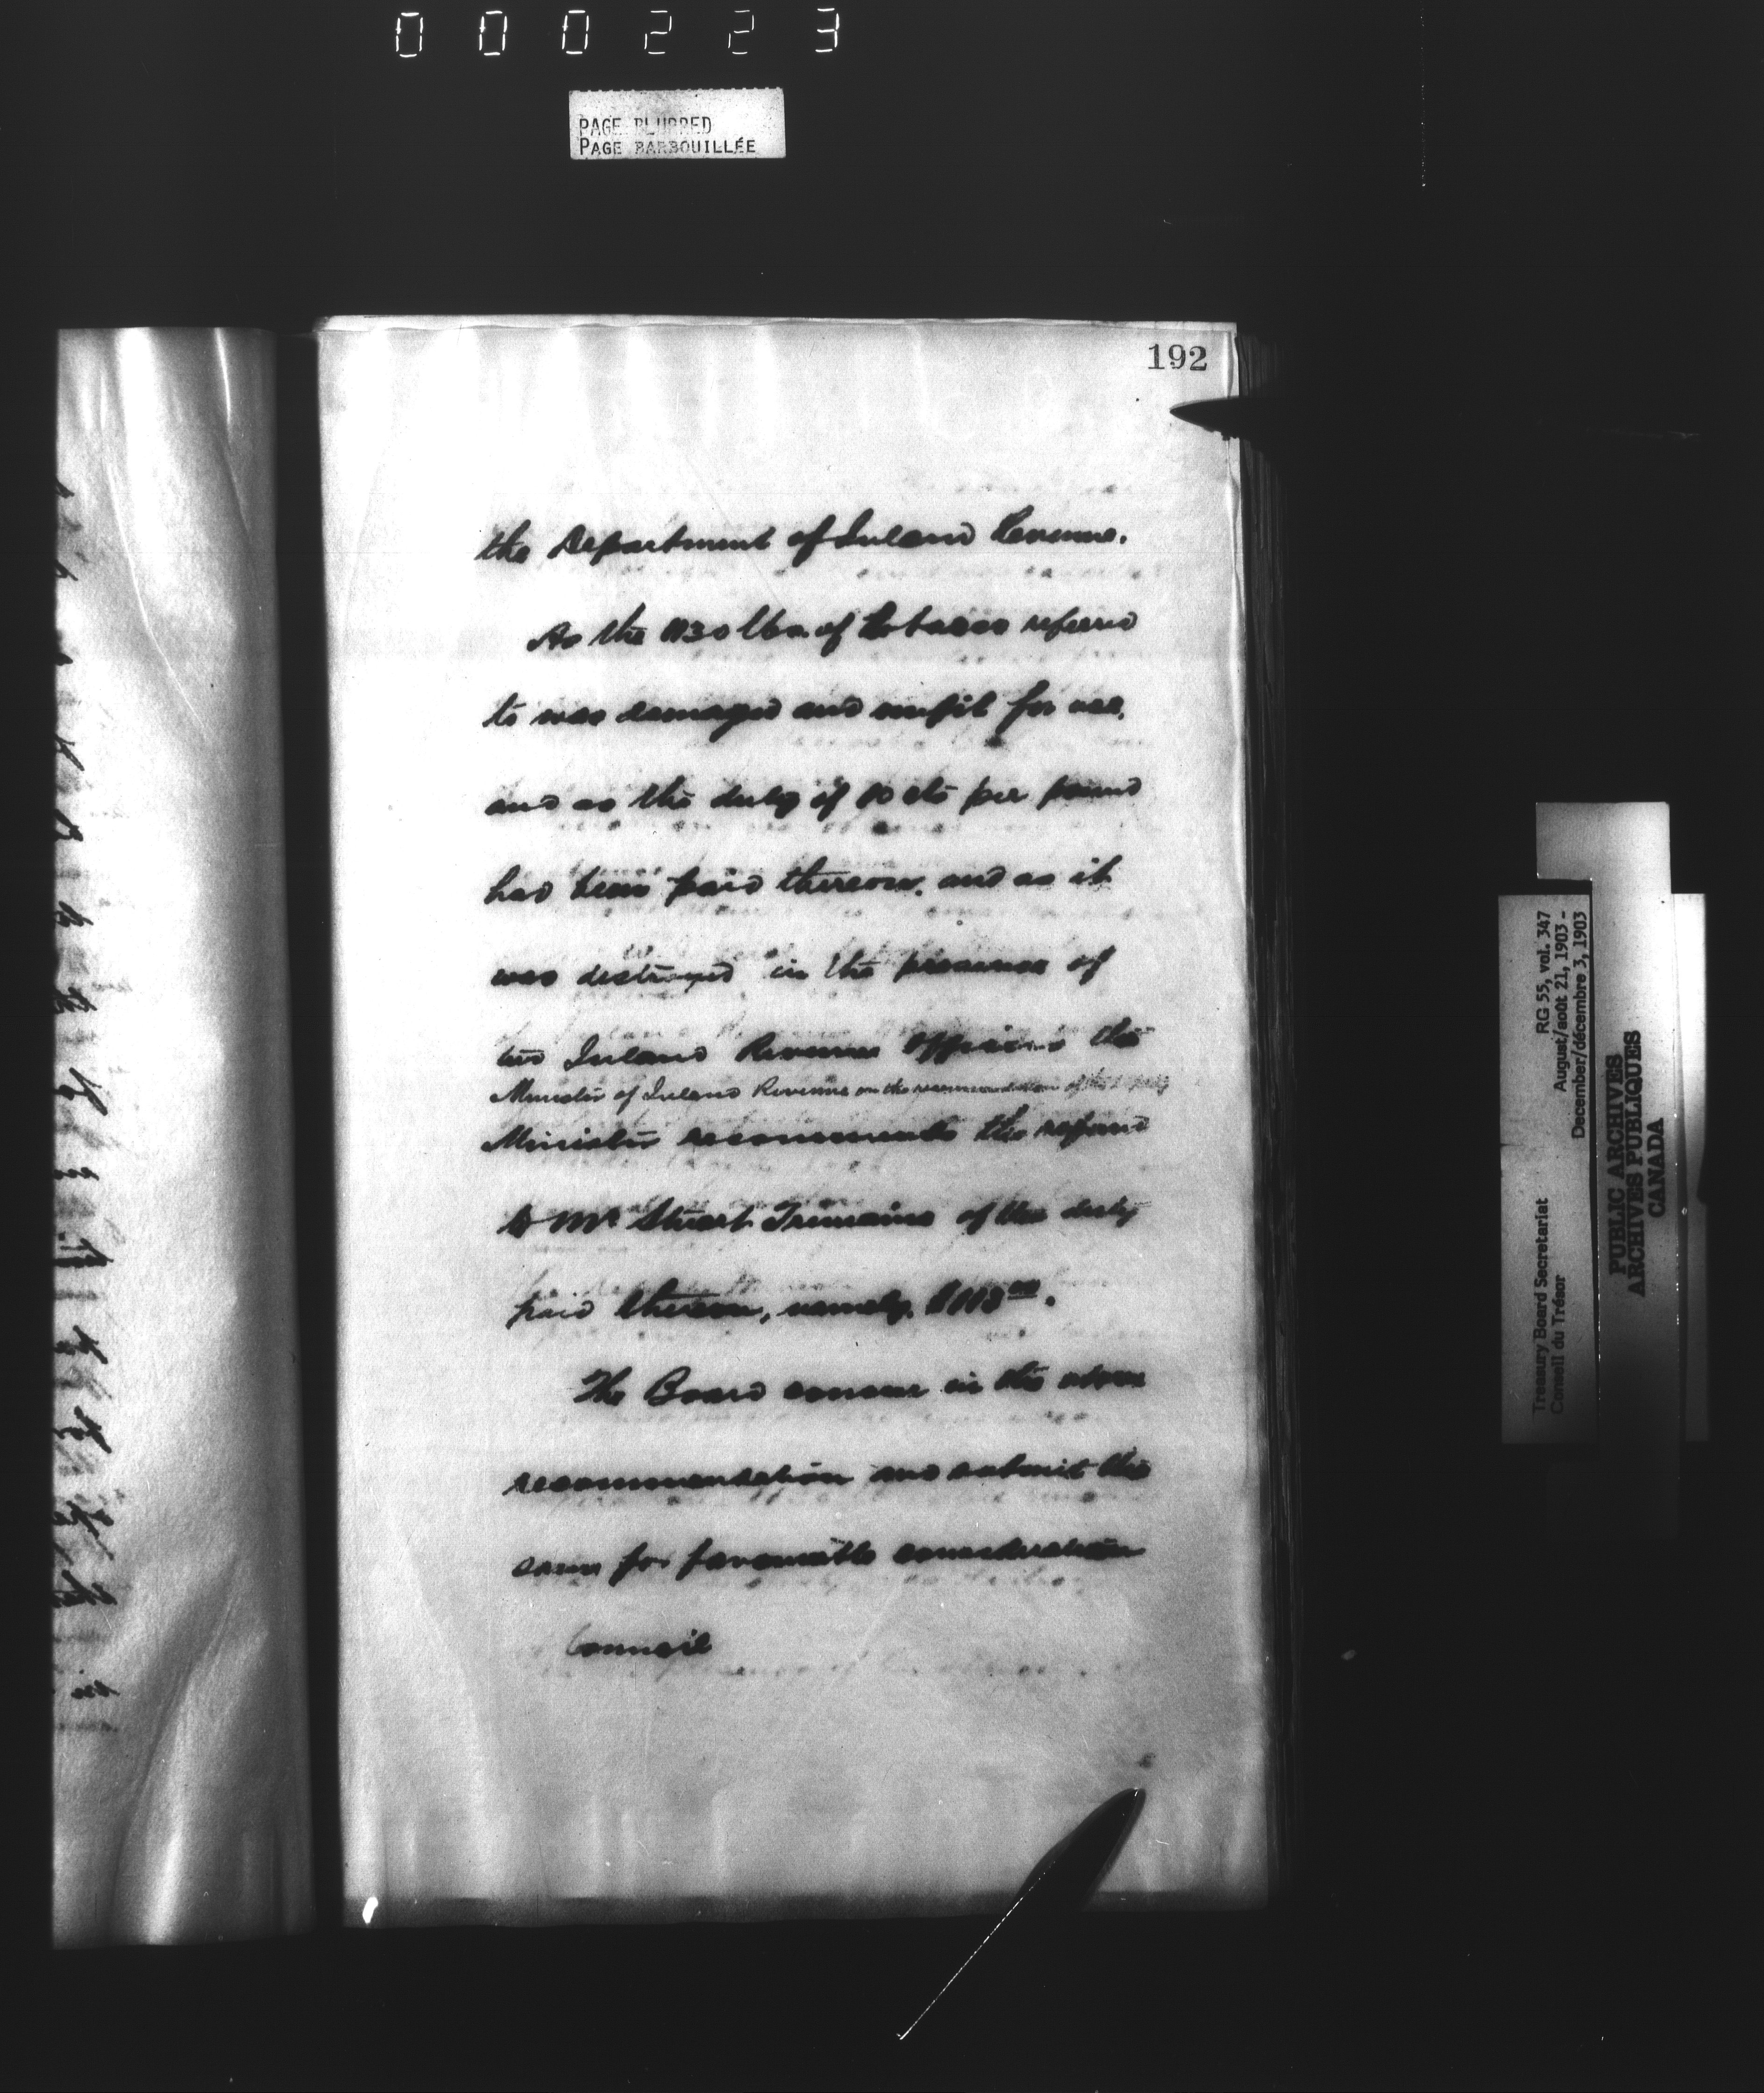 000223
PAGE BLURRED
PAGE BARBOUILLÉE
192
the Department of Inland Revenue.
As the 1130 lbs. of Tobacco referred
to was damaged and unfit for use,
and as the duty of 10 cts per pound
had been paid thereon, and as it
was destroyed in the presence of
two Inland Revenue Officers the
Minister of Inland Revenue on the recommendation of the
Minister recommends the refund
to Mr Stuart Trimaine of the duty
paid thereon, namely, $113 00.
The Board concur in the above
recommendation and submit the
same for favourable consideration
Council
Treasury Board Secretariat RG 55, vol. 347
Conseil du Trésor August/août 21, 1903 -
December/décembre 3, 1903
PUBLIC ARCHIVES
ARCHIVES PUBLIQUES
CANADA